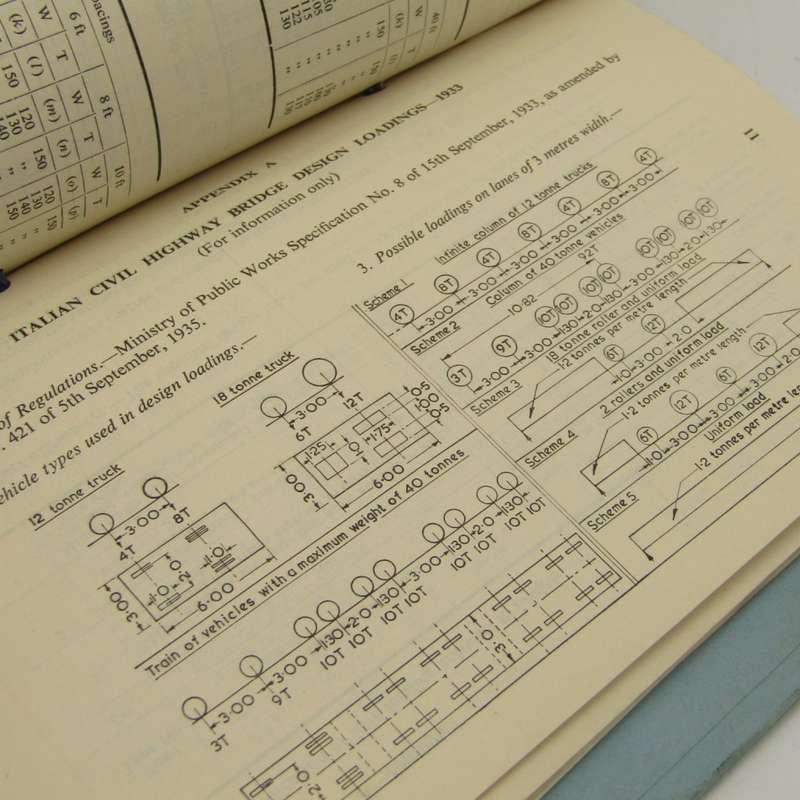 acings
6 ft
8 ft
10 ft
40 ft
W
T
W
T
W
T
W
T
(k)
(l)
(m)
(n)
(o)
(p)
(k)
(l)
150
120
130
140
150
120
130
140
150
150
115
122
130
150
150
11
APPENDIX A
ITALIAN CIVIL HIGHWAY BRIDGE DESIGN LOADINGS—1933
(For information only)
of Regulations.—Ministry of Public Works Specification No. 8 of 15th September, 1933, as amended by
. 421 of 5th September, 1935.
ehicle types used in design loadings.—
12 tonne truck
3·00
4T 8T
3·00
1·0
·20
1·0
6·00
18 tonne truck
3·00
6T 12T
0·5
1·00
0·5
1·25
1·75
3·00
6·00
Train of vehicles with a maximum weight of 40 tonnes
3·00 3·00 1·30 2·0 1·30 3·00 1·30 2·0 1·30
3T 9T 10T 10T 10T 10T 10T 10T 10T 10T
3·0
2·0
3. Possible loadings on lanes of 3 metres width.—
Scheme 1
Infinite column of 12 tonne trucks
4T 8T 4T 8T 4T 8T 4T
3·00 3·00 3·00 3·00 3·00 3·00
Scheme 2
Column of 40 tonne vehicles
10·82 92T
3T 9T 10T 10T 10T 10T 10T 10T 10T 10T
3·00 3·00 1·30 2·0 1·30 3·00 1·30 2·0 1·30
Scheme 3
18 tonne roller and uniform load
1·2 tonnes per metre length
6T 12T
1·0 3·00 2·0
Scheme 4
2 rollers and uniform load
1·2 tonnes per metre length
6T 12T 6T 12T
1·0 3·00 3·00 3·00 2·0
Scheme 5
Uniform load
1·2 tonnes per metre len